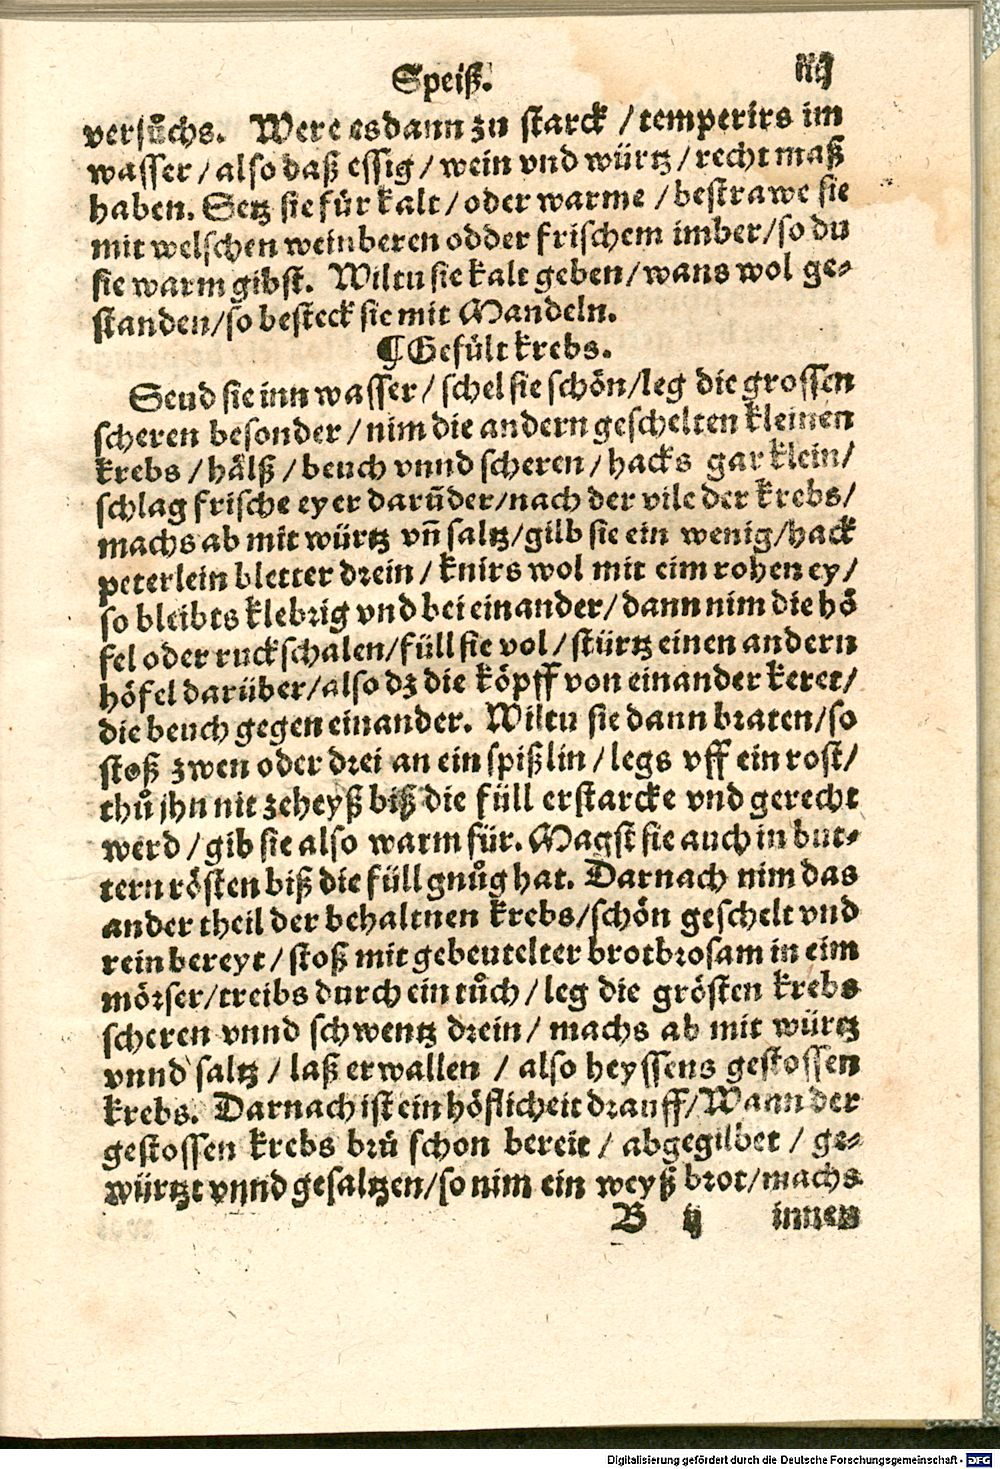 Speiß. iij
versůchs. Were es dann zu starck / temperirs im
wasser / also daß essig / wein vnd würtz / recht maß
haben. Setz sie für kalt / oder warme / bestrawe sie
mit welschen weinberen odder frischem imber / so du
sie warm gibst. Wiltu sie kalt geben / wans wol ge⸗
standen / so besteck sie mit Mandeln.
¶ Gefült krebs.
Seud sie inn wasser / schel sie schön / leg die grossen
scheren besonder / nim die andern geschelten kleinen
krebs / hälß / beuch vnnd scheren / hacks gar klein /
schlag frische eyer darũder / nach der vile der krebs /
machs ab mit würtz vñ saltz / gilb sie ein wenig / hack
peterlein bletter drein / knirs wol mit eim rohen ey /
so bleibts klebrig vnd bei einander / dann nim die hö
fel oder ruckschalen / füll sie vol / stürtz einen andern
höfel darüber / also dz die köpff von einander keret /
die beuch gegen einander. Wiltu sie dann braten / so
stoß zwen oder drei an ein spißlin / legs vff ein rost /
thů jhn nit zeheyß biß die füll erstarcke vnd gerecht
werd / gib sie also warm für. Magst sie auch in but⸗
tern rösten biß die füll gnůg hat. Darnach nim das
ander theil der behaltnen krebs / schön geschelt vnd
rein bereyt / stoß mit gebeutelter brotbrosam in eim
mörser / treibs durch ein tůch / leg die grösten krebs
scheren vnnd schwentz drein / machs ab mit würtz
vnnd saltz / laß erwallen / also heyssens gestossen
krebs. Darnach ist ein höflicheit drauff / Wann der
gestossen krebs brů schon bereit / abgegilbet / ge⸗
würtzt vnnd gesaltzen / so nim ein weyß brot / machs
B ij innen
Digitalisierung gefördert durch die Deutsche Forschungsgemeinschaft - DFG